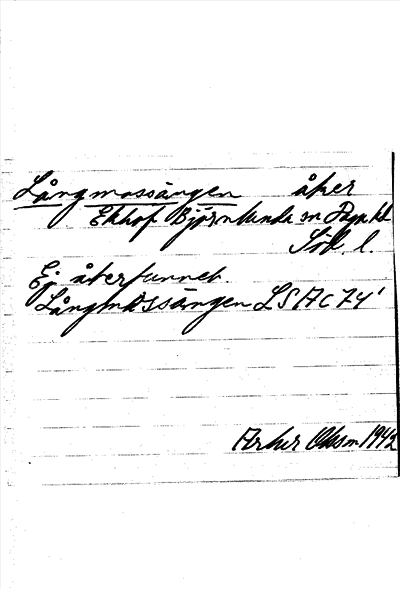 Långmossängen åker
Ekhof Björnlunda sn Daga hd
Söd. l.
Ej återfunnet.
Långmossängen LSA C 74¹
Arthur Olsson 1942